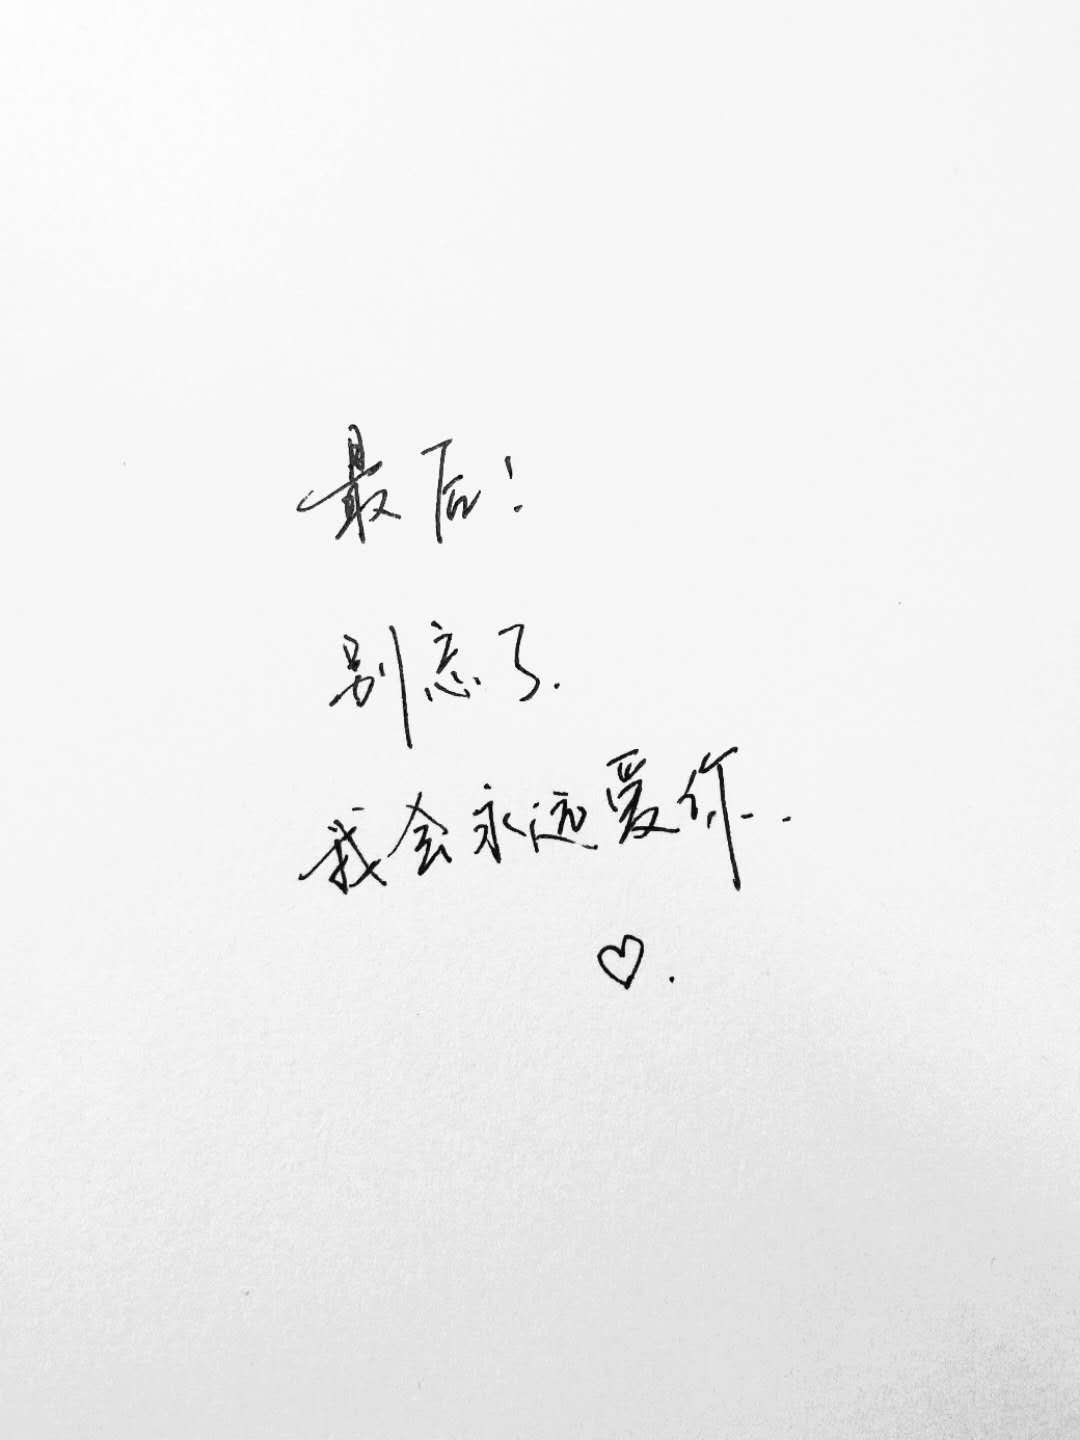 最后!
别忘了.
我会永远爱你..
♡.